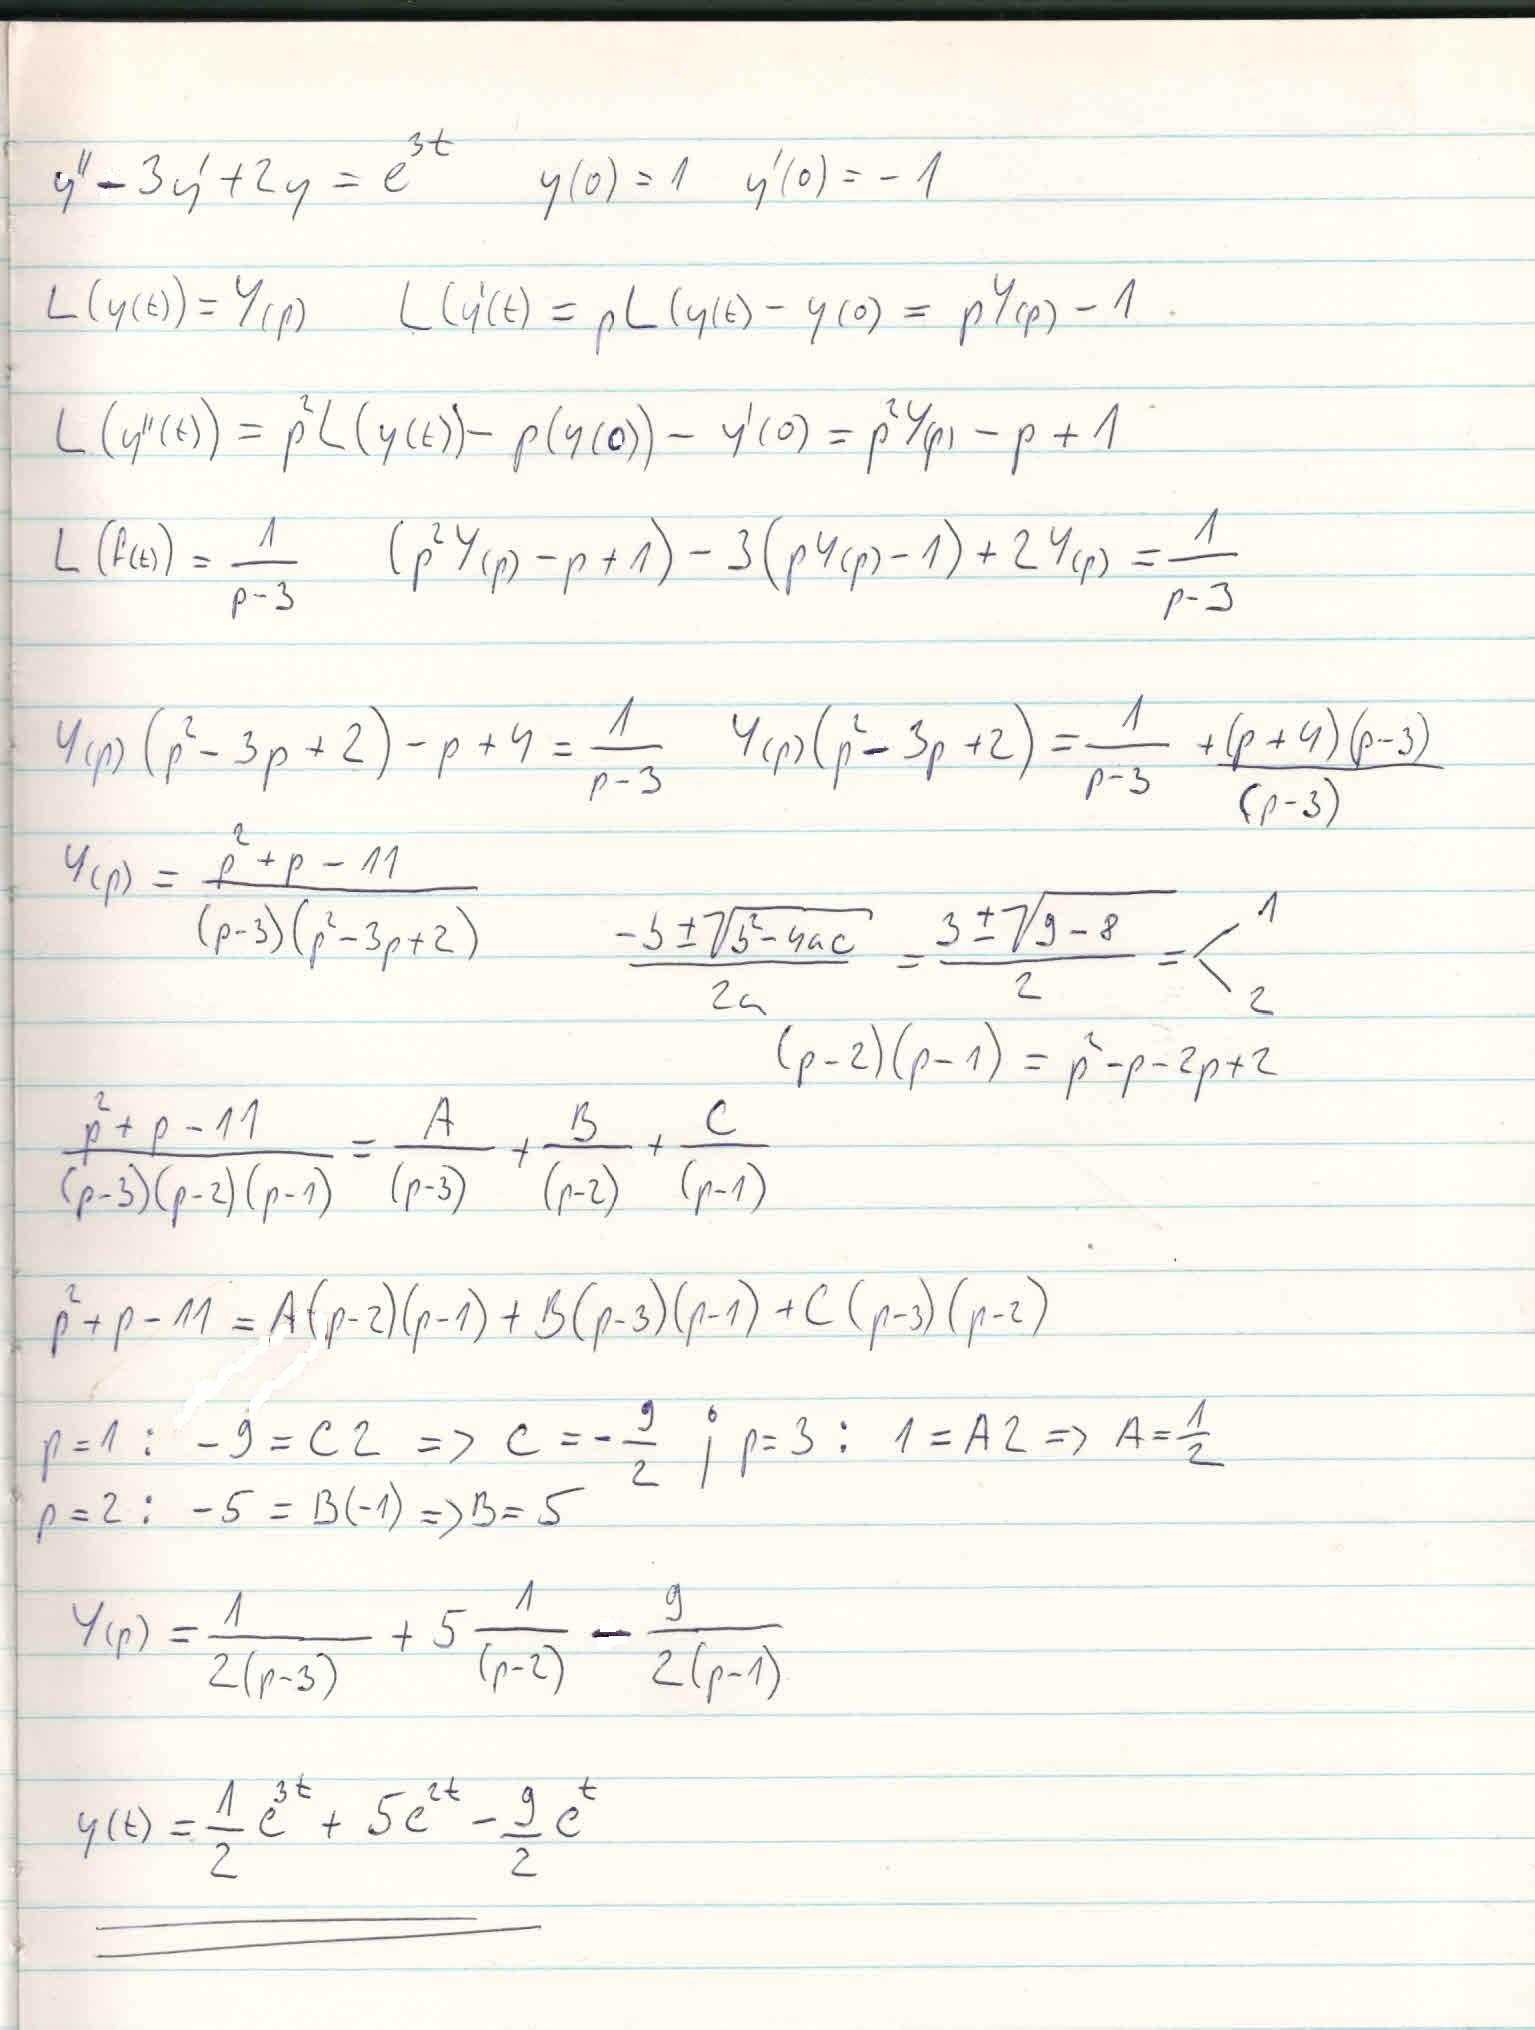 y'' - 3y' + 2y = e^{3t}   y(0) = 1   y'(0) = -1
L(y(t)) = Y(p)   L(y'(t) = pL(y(t) - y(0) = pY(p) - 1
L(y''(t)) = p²L(y(t)) - p(y(0)) - y'(0) = p²Y(p) - p + 1
L(f(t)) = 1/(p-3)   (p²Y(p) - p + 1) - 3(pY(p) - 1) + 2Y(p) = 1/(p-3)
Y(p)(p² - 3p + 2) - p + 4 = 1/(p-3)   Y(p)(p² - 3p + 2) = 1/(p-3) + (p+4)(p-3)/(p-3)
Y(p) = (p² + p - 11)/((p-3)(p²-3p+2))   (-b ± √(b²-4ac))/2a = (3 ± √(9-8))/2 = < 1 2
(p-2)(p-1) = p² - p - 2p + 2
(p² + p - 11)/((p-3)(p-2)(p-1)) = A/(p-3) + B/(p-2) + C/(p-1)
p² + p - 11 = A(p-2)(p-1) + B(p-3)(p-1) + C(p-3)(p-2)
p=1 : -9 = C2 => C = -9/2 ; p=3 : 1 = A2 => A = 1/2
p=2 : -5 = B(-1) => B = 5
Y(p) = 1/(2(p-3)) + 5 1/(p-2) - 9/(2(p-1))
y(t) = 1/2 e^{3t} + 5e^{2t} - 9/2 e^{t}